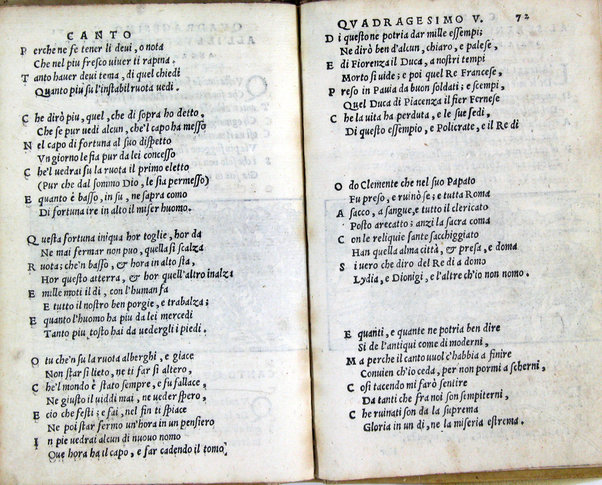 CANTO
P erche ne fe tener li deui, o nota
Che nel piu fresco uiuer ti rapina.
T anto hauer deui tema, di quel chiedi
Quanto piu su l'instabil ruota uedi.
C he dirò piu, quel, che di sopra ho detto,
Che se pur uedi alcun, che'l capo ha messo
N el capo di fortuna al suo dispetto
Vn giorno le sia pur da lei concesso
C he'l uedrai su la ruota il primo eletto
(Pur che dal sommo Dio, le sia permesso)
E quanto è basso, in su, ne sapra como
Di fortuna ire in alto il miser huomo.
Q uesta fortuna iniqua hor toglie, hor da
Ne mai fermar non puo, quella si scalza
R uota; che'n basso, & hora in alto sta,
Hor questo atterra, & hor quell'altro inalza
E mille moti il di, con l'human fa
E tutto il nostro ben porgie, e trabalza;
E quanto l'huomo ha piu da lei mercedi
Tanto piu tosto hai da uedergli i piedi.
O tu ch'n su la ruota alberghi, e giace
Non star si lieto, ne ti far si altero,
C he'l mondo è stato sempre, e fu fallace,
Ne giusto il uiddi mai, ne ueder spero,
E cio che festi; e fai, nel fin ti spiace
Ne poi star fermo un'hora in un pensiero
I n pie uedrai alcun di nuouo nomo
Que hora ha il capo, e far cadendo il tomo
QVADRAGESIMO V. 72
D i questi one potria dar mille essempi;
Ne dirò ben d'alcun, chiaro, e palese,
E di Fiorenza il Duca, a nostri tempi
Morto si uide; e poi quel Re Francese,
P reso in Pauia da buon soldati; e scempi,
Quel Duca di Piacenza il fier Fernese
C he la uita ha perduta, e le sue sedi,
Di questo essempio, e Policrate, e il Re di
O do Clemente che nel suo Papato
Fu preso, e ruinò se; e tutta Roma
A sacco, a sangue, e tutto il clericato
Posto arecatto; anzi la sacra coma
C on le reliquie sante sacchiggiato
Han quella alma città, & presa, e doma
S i uero che diro del Re di a domo
Lydia, e Dionigi, e l'altre ch'io non nomo.
E quanti, e quante ne potria ben dire
Si de l'antiqui come di moderni,
M a perche il canto uuol c'habbia a finire
Conuien ch'io ceda, per non pormi a scherni,
C osi tacendo mi farò sentire
Da tanti che fra noi son sempiterni,
C he ruinati son da la suprema
Gloria in un di, ne la miseria estrema.